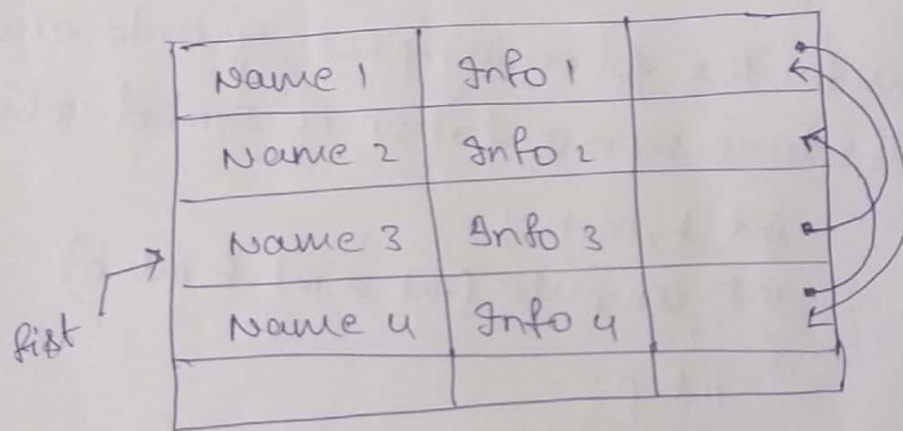 Name 1 Info 1
Name 2 Info 2
Name 3 Info 3
Name 4 Info 4